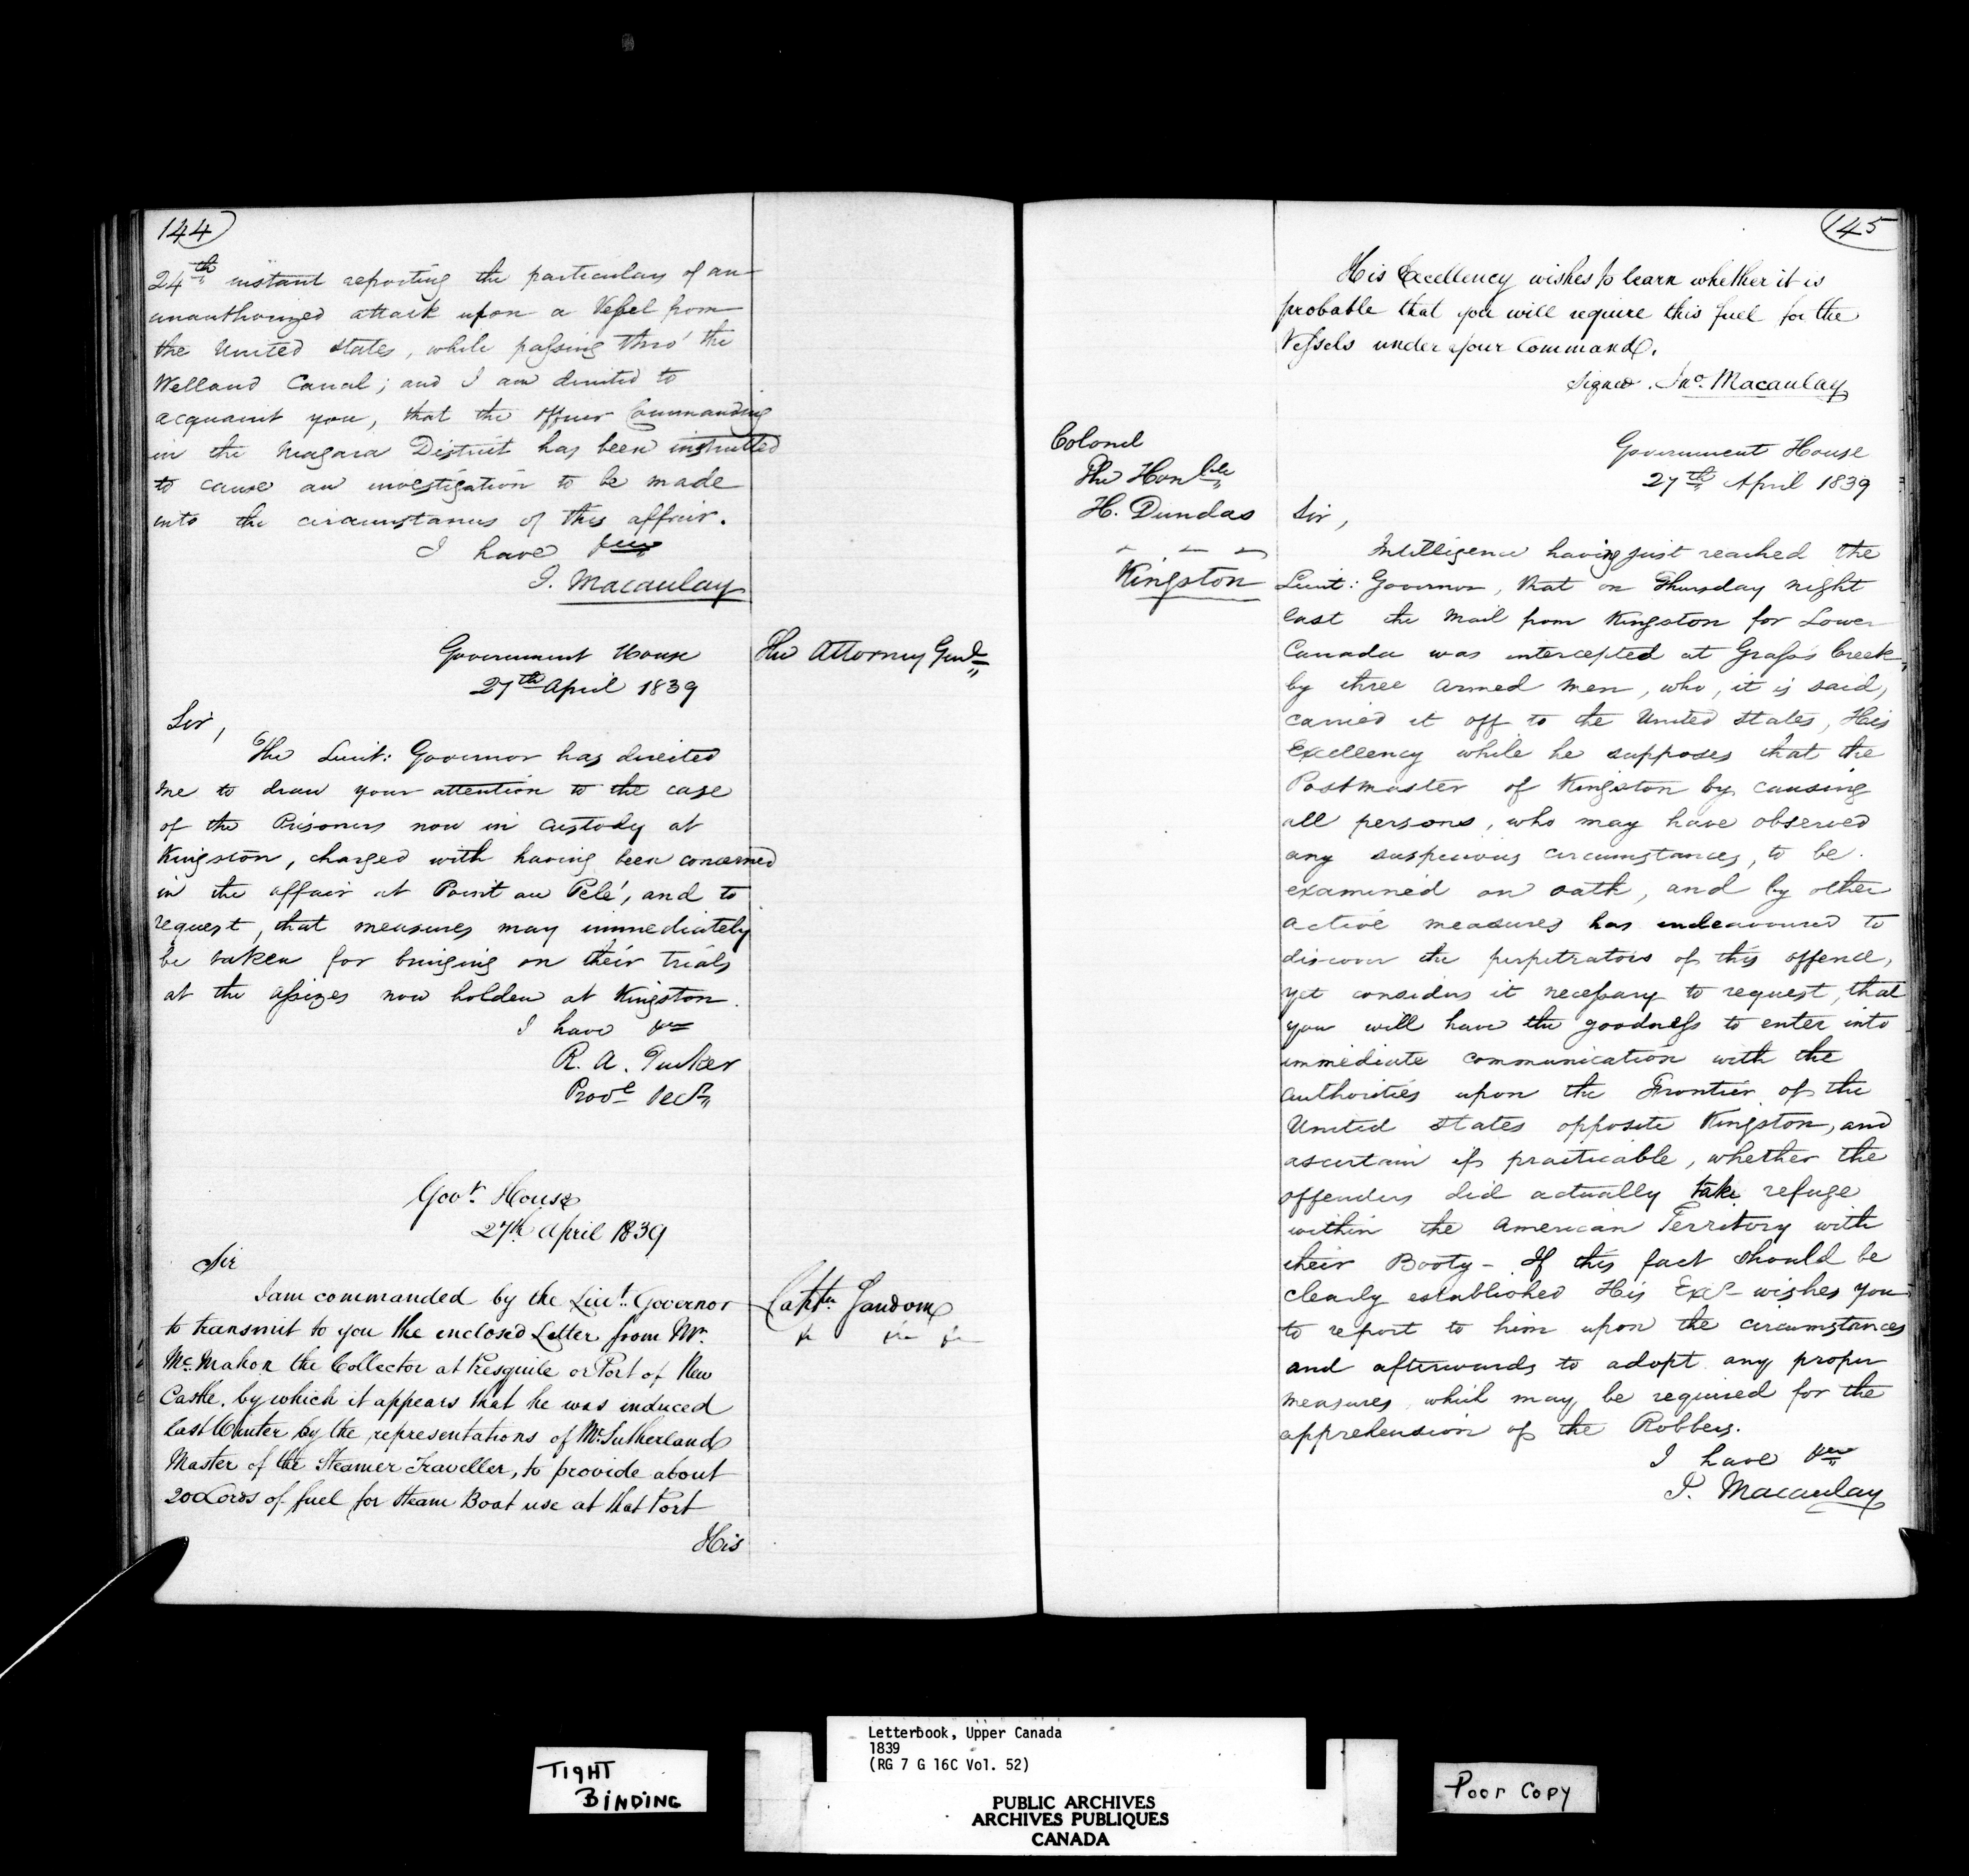 144
24th instant reporting the particulars of an
unauthorized attack upon a Vessel from
the United States, while passing thro' the
Welland Canal; and I am directed to
acquaint you, that the Officer Commanding
in the Niagara District has been instructed
to cause an investigation to be made
into the circumstances of this affair.
I have
J. Macaulay
Government House
27th April 1839
The Attorney Genl
Sir,
The Lieut: Governor has directed
me to draw your attention to the case
of the Prisoners now in custody at
Kingston, charged with having been concerned
in the affair at Point au Pelé, and to
request, that measures may immediately
be taken for bringing on their trials
at the assizes now holden at Kingston.
I have
R. A. Tucker
Provl Secy
Govt. House
27th April 1839
Sir
I am commanded by the Lieut. Governor
Captn. Sandom
to transmit to you the enclosed Letter from Mr.
McMahon the Collector at Presquile or Port of New
Castle, by which it appears that he was induced
last Winter by the representations of Mr. Sutherland
Master of the Steamer Traveller, to provide about
200 Cords of fuel for Steam Boat use at that Port
His
145
His Excellency wishes to learn whether it is
probable that you will require this fuel for the
Vessels under your Command.
Signed. Jno. Macaulay
Government House
27th April 1839
Colonel
The Honble
H. Dundas
Kingston
Sir,
Intelligence having just reached the
Lieut: Governor, that on Thursday night
last the Mail from Kingston for Lower
Canada was intercepted at Grass's Creek,
by three armed men, who, it is said,
carried it off to the United States, His
Excellency while he supposes that the
Postmaster of Kingston by causing
all persons, who may have observed
any suspicious circumstances, to be
examined on oath, and by other
active measures has endeavoured to
discover the perpetrators of this offence,
yet considers it necessary to request, that
you will have the goodness to enter into
immediate communication with the
authorities upon the Frontier of the
United States opposite Kingston, and
ascertain if practicable, whether the
offenders did actually take refuge
within the American Territory with
their Booty - If this fact should be
clearly established His Excy wishes you
to report to him upon the circumstances
and afterwards to adopt any proper
measures which may be required for the
apprehension of the Robbers.
I have
J. Macaulay
TIGHT
BINDING
Letterbook, Upper Canada
1839
(RG 7 G 16C Vol. 52)
PUBLIC ARCHIVES
ARCHIVES PUBLIQUES
CANADA
Poor Copy